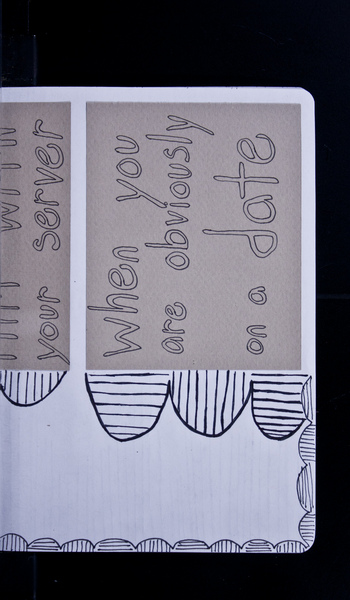 your server
When you
are obviously
on a date